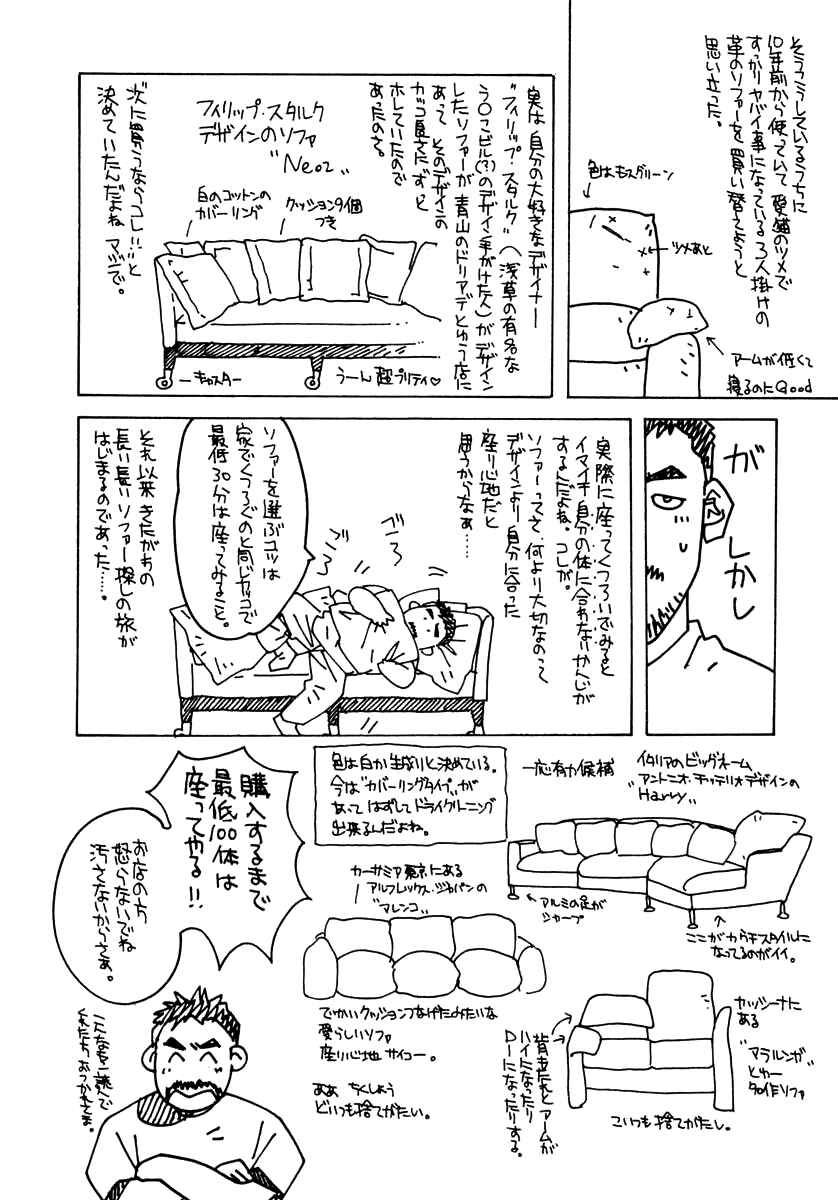 そうこうしているうちに
10年前から使っていて愛猫のツメで
すっかりヤバイ事になっている3人掛けの
革のソファーを買い替えようと
思い立った。
色はモスグリーン
ツメあと
アームが低くて
寝るのにGood
実は自分の大好きなデザイナー
"フィリップ・スタルク"(浅草の有名な
う○こビル(?)のデザイン手がけた人)がデザイン
したソファーが青山のドリアデとゆう店に
あって そのデザインの
カッコ良さにずっと
ホレていたので
あったので。
フィリップ・スタルク
デザインのソファ
"Neoz"
白のコットンの
カバーリング
クッション9個
つき
次に買うならコレ!!と
決めていたんだよね マジで。
キャスター
うーん 超プリティ♡
がしかし
実際に座ってくつろいでみると
イマイチ自分の体に合わないかんじが
するんだよね。コレが。
ソファーってさ、何より大切なのって
デザインより自分に合った
座り心地だと
思うからなぁ……
ゴロ
ゴロ
ソファーを選ぶコツは
家でくつろぐのと同じカッコで
最低30分は座ってみること。
それ以来きたがわの
長い長いソファー探しの旅が
はじまるのであった……。
イタリアのビッグネーム
"アントニオ・チッテリオデザインの
Harry"
一応有力候補
アルミの足が
シャープ
ここがカウチスタイルに
なってるのがイイ。
色は白か生成りと決めている。
今は"カバーリングタイプ"が
あって はずしてドライクリーニング
出来るんだよね。
カーサミア東京にある
アルフレックス・ジャパンの
"マレンコ"
でかいクッションつなげたみたいな
愛らしいソファ
座り心地サイコー。
ああ ちくしょう
どいつも捨てがたい。
カッシーナに
ある
"マラルンガ"
とゆー
名作ソファ
背もたれとアームが
ハイになったり
ローになったりする。
こいつも捨てがたし。
購入するまで
最低100体は
座ってやる!!
お店の方
怒らないでね
汚さないからさぁ。
こんなもん読んで
くれたちおつかれさま。